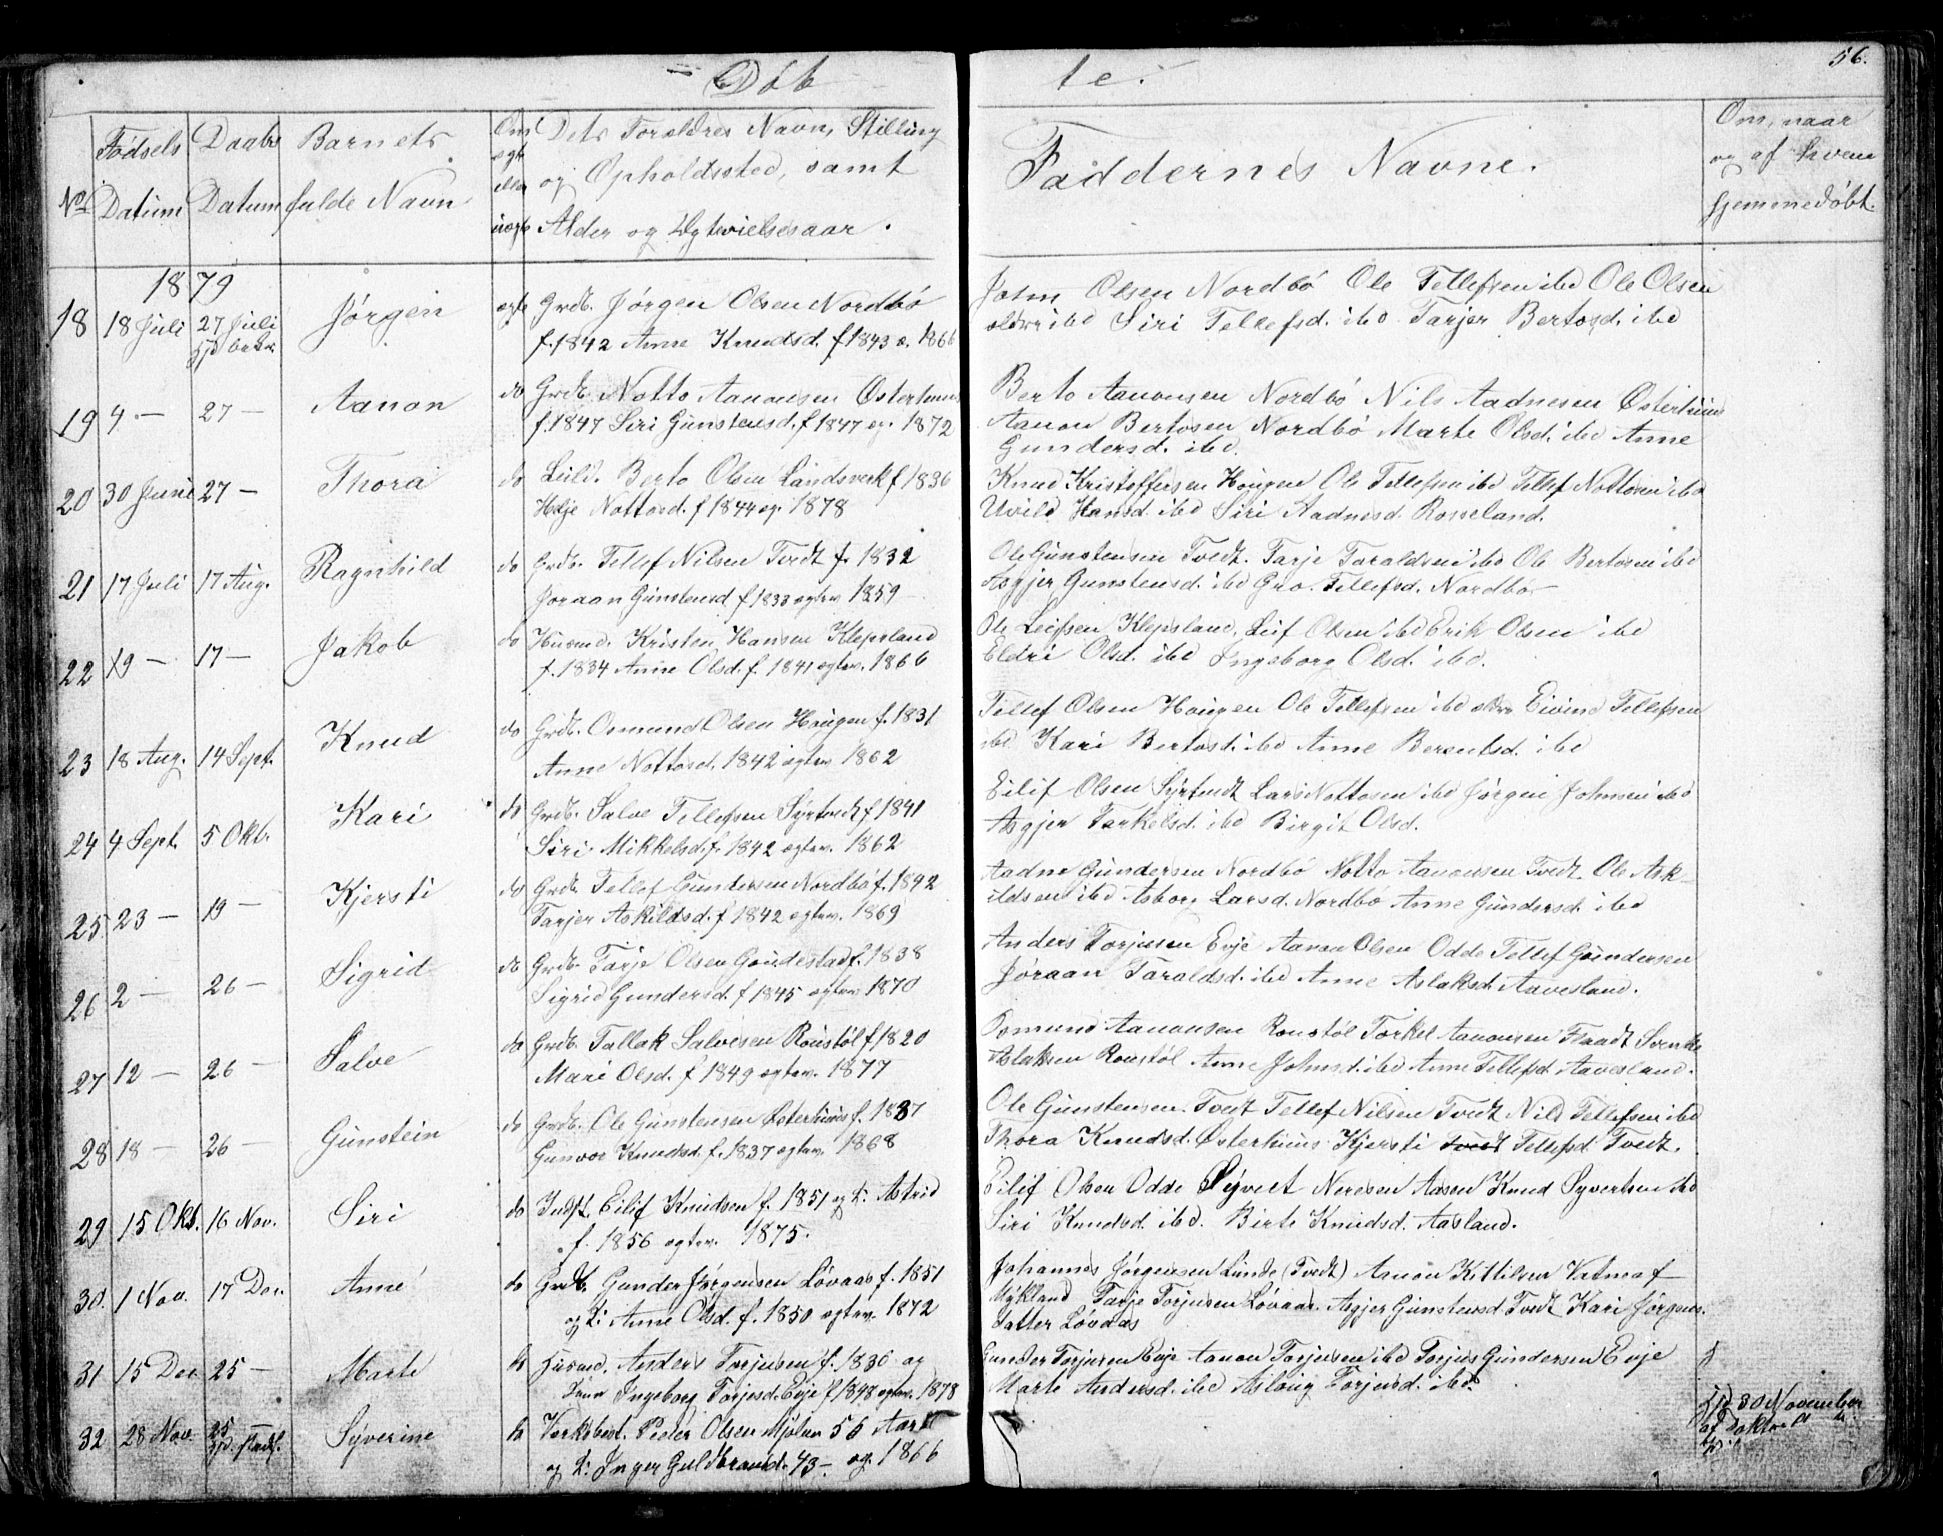 56.
Döbte.
No Födsels Datum
Daabs Datum
Barnets fulde Navn
Om egte eller uegte
Dets Forældres Navn, Stilling
og Opholdssted, samt
Alder og Egtevielsesaar.
Faddernes Navne.
Om, naar
og af hvem
hjemmedöbt.
1879
18 18 Juli 27 Juli Jørgen egte Grdb. Jørgen Olsen Nordbö
f. 1842 Anne Knudsd. f 1843 e. 1866
John Olsen Nordbö Ole Tellefsen ibd Ole Olsen
ældre ibd Siri Tellefsd. ibd Tarjer Bertosd. ibd
19 4 — 27 — Aanon do Grdb. Notto Aanonsen Österhuus
f. 1847 Siri Gunstensd. f 1847 eg. 1872
Berto Aanonsen Nordbö Nils Aadnesen Österhuus
Aanon Bertosen Nordbö Marte Olsd. ibd Anne
Gundersd. ibd.
20 30 Juni 27 — Thora do Leild. Berto Olsen Landsverk f 1836
Helje Nottosd. f 1844 eg. 1878
Knud Kristoffersen Haugen Ole Tellefsen ibd Tellef Nottosen ibd
Uvild Hansd. ibd Siri Aadnesd. Rosseland.
21 17 Juli 17 Aug. Ragnhild do Grdb. Tellef Nilsen Tvedt f. 1832
Joraan Gunstensd f 1833 egtev. 1859
Ole Gunstensen Tvedt. Tarje Taraldsen ibd Ole Bertosen ibd
Asgjer Gunstensd. ibd Gro. Tellefsd. Nordbö
22 19 — 17 — Jakob do Husmd. Kristen Hansen Klepsland
f. 1834 Anne Olsd. f. 1841 egtev. 1866
Ole Leifsen Klepsland, Leif Olsen ibd Erik Olsen ibd
Eldri Olsd. ibd Ingeborg Olsd. ibd.
23 18 Aug. 14 Sept. Knud do Grdb. Osmund Olsen Haugen f. 1831
Anne Nottosd. 1842 egtev. 1862
Tellef Olsen Haugen Ole Tellefsen ibd ældre Eivind Tellefsen
ibd Kari Bertosd. ibd Anne Berentsd. ibd
24 4 Sept. 5 Oktr. Kari do Grdb. Salve Tellefsen Syrtvedt f 1841
Siri Mikkelsd. f. 1842 egtev. 1862
Eilif Olsen Syrtvedt Lars Nottosen ibd Jörgen Johnsen ibd
Asgjer Tarkelsd. ibd Birgit Olsd.
25 23 — 19 — Kjersti do Grdb. Tellef Gundersen Nordbö f. 1842
Tarjer Askildsd. f 1842 egtev. 1869
Aadne Gundersen Nordbö Notto Aanonsen Tvedt Ole Ask-
ildsen ibd Asborg Larsd. Nordbö Anne Gundersd. ibd
26 2 — 26 — Sigrid do Grdb. Tarje Olsen Goudestad f. 1838
Sigrid Gundersd. f 1845 egtev. 1870
Anders Torjusen Evje Aanon Olsen Odde Tellef Gundersen
Jöraan Taraldsd. ibd Anne Aslaksd. Aavesland.
27 12 — 26 — Salve do Grdb. Tallak Salvesen Roustöl f 1820
Mari Olsd. f 1849 egtev. 1877
Osmund Aanonsen Roustöl Torkel Aanonsen Flaadt Svenke
Aslaksen Roustöl Anne Johnsd. ibd Anne Tellefsd. Aavesland.
28 18 — 26 — Gunstein do Grdb. Ole Gunstensen Österhuus f. 1837
Gunvor Knudsd. f. 1837 egtev. 1868
Ole Gunstensen. Tvedt Tellef Nilsen Tvedt Nils Tellefsen ibd
Thora Knudsd. Österhuus Kjersti Tvedt Tellefsd Tvedt.
29 15 Okt. 16 Nov. Siri do Indst. Eilif Knudsen f. 1851 og K. Astrid
f. 1856 egtev. 1875.
Eilif Olsen Odde Syvert Neresen Aasen Knud Syvertsen ibd
Siri Knudsd. ibd. Birte Knudsd. Aasland.
30. 1 Nov. 17 Dec. Anne do Grdb. Gunder Jørgensen Lövaas f. 1851
og K: Anne Olsd. f. 1850 egtev. 1872
Johannes Jörgensen Lunde (Tvedt) Aanon Kittilsen Vatne af
Mykland Tarje Torjusen Lövaas. Asgjer Gunstensd. Tvedt Kari Jörgens-
datter Lövaas
31 15 Dec 25 — Marte do Husmd. Anders Torjusen f. 1836 og
Kone Ingeborg Torjesd. Evje f 1848 egtev. 1878
Gunder Torjusen Evje Aanon Torjusen ibd Torjus Gundersen Evje
Marte Andersd. ibd Aslaug Torjusd. ibd
32 28 Nov 25 Syverine do Verksbest. Peder Olsen Mjölen 56 Aar
og K: Inger Guldbrandsd. 43 — eg. 1866
hjd 30 November
af Doktor